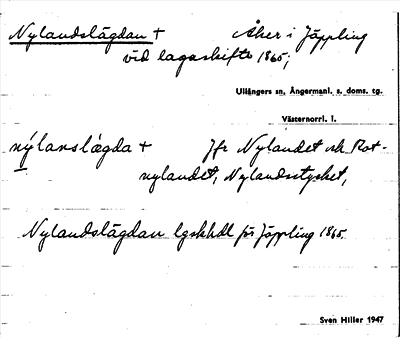 Nylandslägdan + Åker i Jäppling
vid lagaskifte 1865;
Ullångers sn, Ångermanl. s. doms. tg.
Västernorrl. l.
nýlanslägda + Jfr Nylandet och Rot-
nylandet, Nylandsstycket,
Nylandslägdan lgskhdl för Jäppling 1865.
Sven Hiller 1947